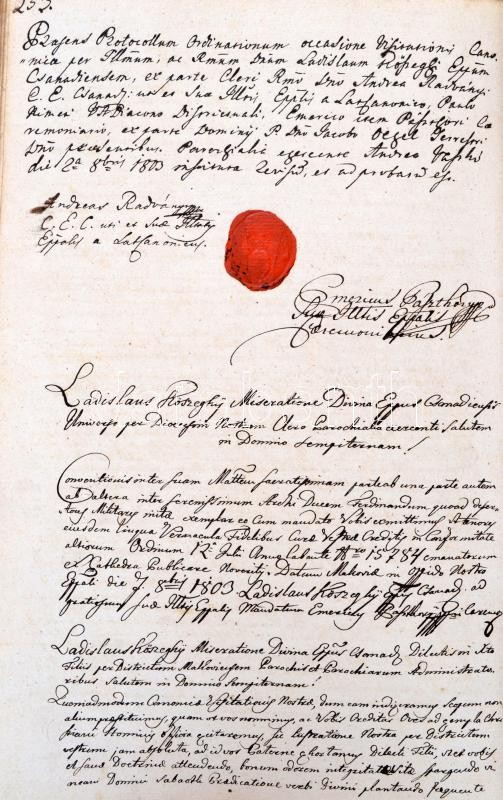 233.
Præsens Protocollum Ordinationum occasione Visitationis Cano-
nicæ per Illmum, ac Rmum Dnum Ladislaum Köszeghÿ Eppum
Csanadiensem, ex parte Cleri Rmo Dno Andrea Radványi
E. E. Csanad: uti et Suæ Illtis, Epplis a Latere Canonico, Paulo
V. A Diacono Districtuali, Emerico item Paszthori Cæ
remoniario, ex parte Dominij P. Dno Jacobo
Dno præsentibus. Parochiali exercente Andrea
die 2a 8bris 1803 revisum, et adprobatum est.
Andreas Radványi
E. E. C. uti et Suæ Illtatis
Epplis a Lat. Canonicus.
Emericus Paszthory
Suæ Illtis Epplis
Ceremoniarius.
Ladislaus Köszeghÿ Miseratione Divina Eppus Csanadiensis
Universo per Diocesim Nostram Clero Parochiali exercenti salutem
in Domino sempiternam!
Conventionis inter suam Mattem Sacratissimam parte ab una parte autem
ab altera inter serenissimum Archi Ducem Ferdinandum quoad deser-
tores Militares initæ exemplar eo Cum mandato Vobis committimus, ut
ejusdem Lingua Vernacula Fidelibus Curæ Vestræ Creditis in Conformitate
altiorum Ordinum 12 Julii Anni Labentis Nro 15784 emanatorum
e Cathedra Publicare Noveritis, Datum Makoviæ in Oppido Nostro
Eppali die 7 8bris 1803 Ladislaus Köszeghÿ Eppus Csanad, ad
gratiosum Suæ Illtis Epplis Mandatum Emericus Paszthory
Ladislaus Köszeghÿ Miseratione Divina Eppus Csanad, Dilectis in Xto
Filiis per Districtum Makoviensem Parochis et Parochiarum Administrato-
ribus Salutem in Domino Sempiternam!
Quemadmodum Canonicæ Visitationis Nostræ, dum eam indiceremus scopum non
alium præstituimus, quam ut vos nonminus, ac Vobis Creditas Oves ad genuina Chri-
stiani Hominis officia excitaremus, sic lustratione Nostra per Districtum
vestrum jam absoluta, ad id vos Paterne exhortamur Dilecti Filii, ut et vobis
et sanæ Doctrinæ attendendo, bonum odorem integritate Vitæ spargendo vi
neam Domini Sabaoth Eradicatione verbi divini plantando frequente